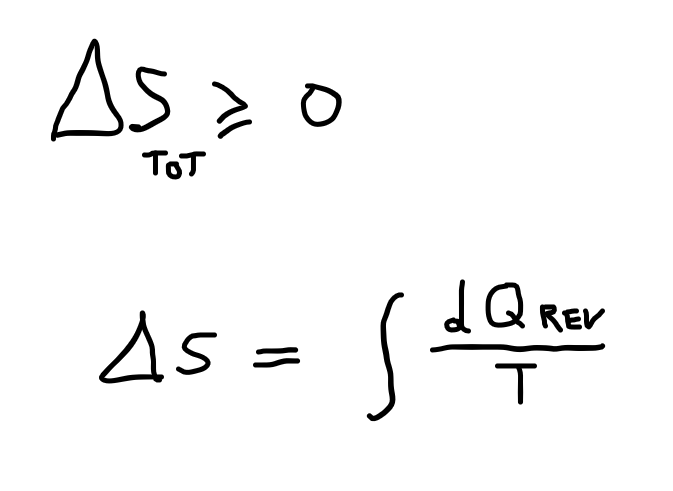 ΔS_TOT ≥ 0
ΔS = ∫ dQ_REV / T